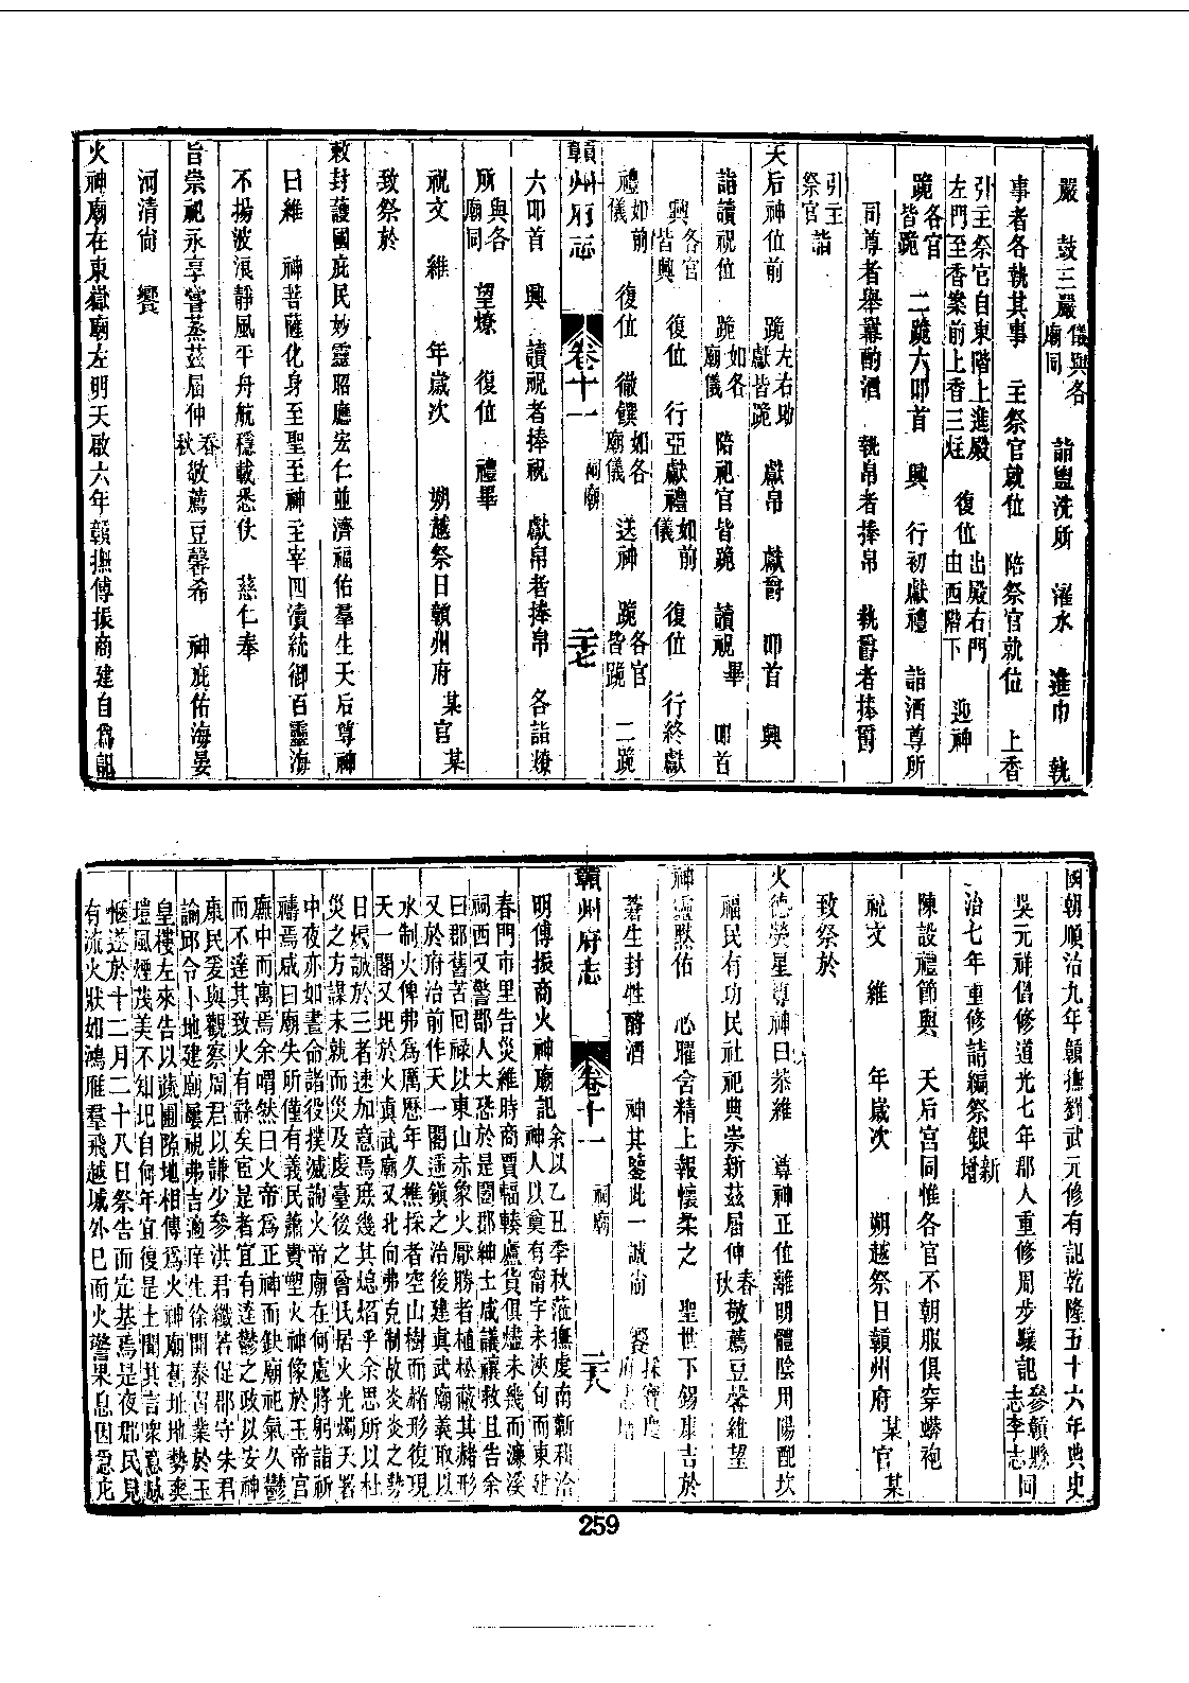 嚴　鼓三嚴儀與各廟同　詣盥洗所　濯水　進巾　執
事者各執其事　主祭官就位　陪祭官就位　上香
引主祭官自東階上進殿左門至香案前上香三炷　復位出殿右門由西階下　迎神
跪各官皆跪　二跪六叩首　興　行初獻禮　詣酒尊所
司尊者舉冪酌酒　執帛者捧帛　執爵者捧爵
引主祭官詣
天后神位前　跪左右助獻皆跪　獻帛　獻爵　叩首　興
詣讀祝位　跪如各廟儀　陪祀官皆跪　讀祝畢　叩首
興各官皆興　復位　行亞獻禮如前儀　復位　行終獻
禮如前儀　復位　徹饌如各廟儀　送神　跪各官皆跪　二跪
贛州府志　卷十一　祠廟　二十七
六叩首　興　讀祝者捧祝　獻帛者捧帛　各詣燎
所與各廟同　望燎　復位　禮畢
祝文　維　年歲次　朔越祭日贛州府某官某
致祭於
敕封護國庇民妙靈昭應宏仁並濟福佑羣生天后尊神
曰維　神菩薩化身至聖至神主宰四瀆統御百靈海
不揚波浪靜風平舟航穩載悉伏　慈仁奉
旨崇祀永享嘗蒸茲屆仲春秋敬薦豆馨希　神庇佑海晏
河清尚　饗
火神廟在東嶽廟左明天啟六年贛撫傅振商建自爲記
國朝順治九年贛撫劉武元修有記乾隆五十六年典史
吳元祥倡修道光七年郡人重修周步驤記參贛縣志李志同
治七年重修請編祭銀新增
陳設禮節與　天后宮同惟各官不朝服俱穿蟒袍
祝文　維　年歲次　朔越祭日贛州府某官某
致祭於
火德熒星尊神曰恭維　尊神正位離明體陰用陽配坎
福民有功民社祀典崇新茲屆仲春秋敬薦豆馨維望
神靈默佑　心曜含精上報懷柔之　聖世下錫康吉於
蒼生封牲酹酒　神其鑒此一誠尚　饗
贛州府志　卷十一　祠廟　二十八
明傅振商火神廟記余以乙丑季秋蒞撫虔南新和洽神人以奠有甯宇未浹旬而東建
春門市里告災維時商賈輻輳廬貨俱燼未幾而濂溪祠西又警郡人大恐於是闔郡紳士咸議禳救且告余
曰郡舊苦回祿以東山赤象火厭勝者植松蔽其赭形又於府治前作天一閣遥鎮之治後建真武廟義取以
水制火俾弗爲厲歷年久樵採者空山樹而赭形復現天一閣又圯於火真武廟又北向弗克制故炎炎之勢
日燬誠於三者速加意焉庶幾其熄熖乎余思所以杜災之方謀未就而災及虔臺後之曾氏居火光燭天署
中夜亦如晝命諸役撲滅詢火帝廟在何處將躬詣祈禱焉咸曰廟失所僅有義民蕭貴塑火神像於玉帝宮
廡中而寓焉余喟然曰火帝爲正神而缺廟祀氣久鬱而不達其致火有辭矣宦是者宜有達鬱之政以安神
康民爰與觀察周君以謙少參洪君纖若促郡守朱君諭邱令卜地建廟屢視弗吉適庠生徐開泰占業於玉
皇樓左來告以蔬圃隙地相傳爲火神廟舊址地勢爽塏風煙茂美不知圯自何年宜復是土聞其言衆意詼
愜遂於十二月二十八日祭告而定基焉是夜郡民見有流火狀如鴻雁羣飛越城外已而火警果息因急庀
259